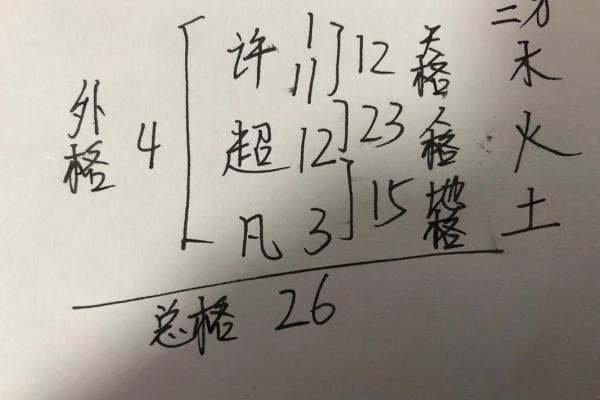 三才
1
许 11 12 天格 木
外格 4 超 12 23 人格 火
凡 3 15 地格 土
总格 26